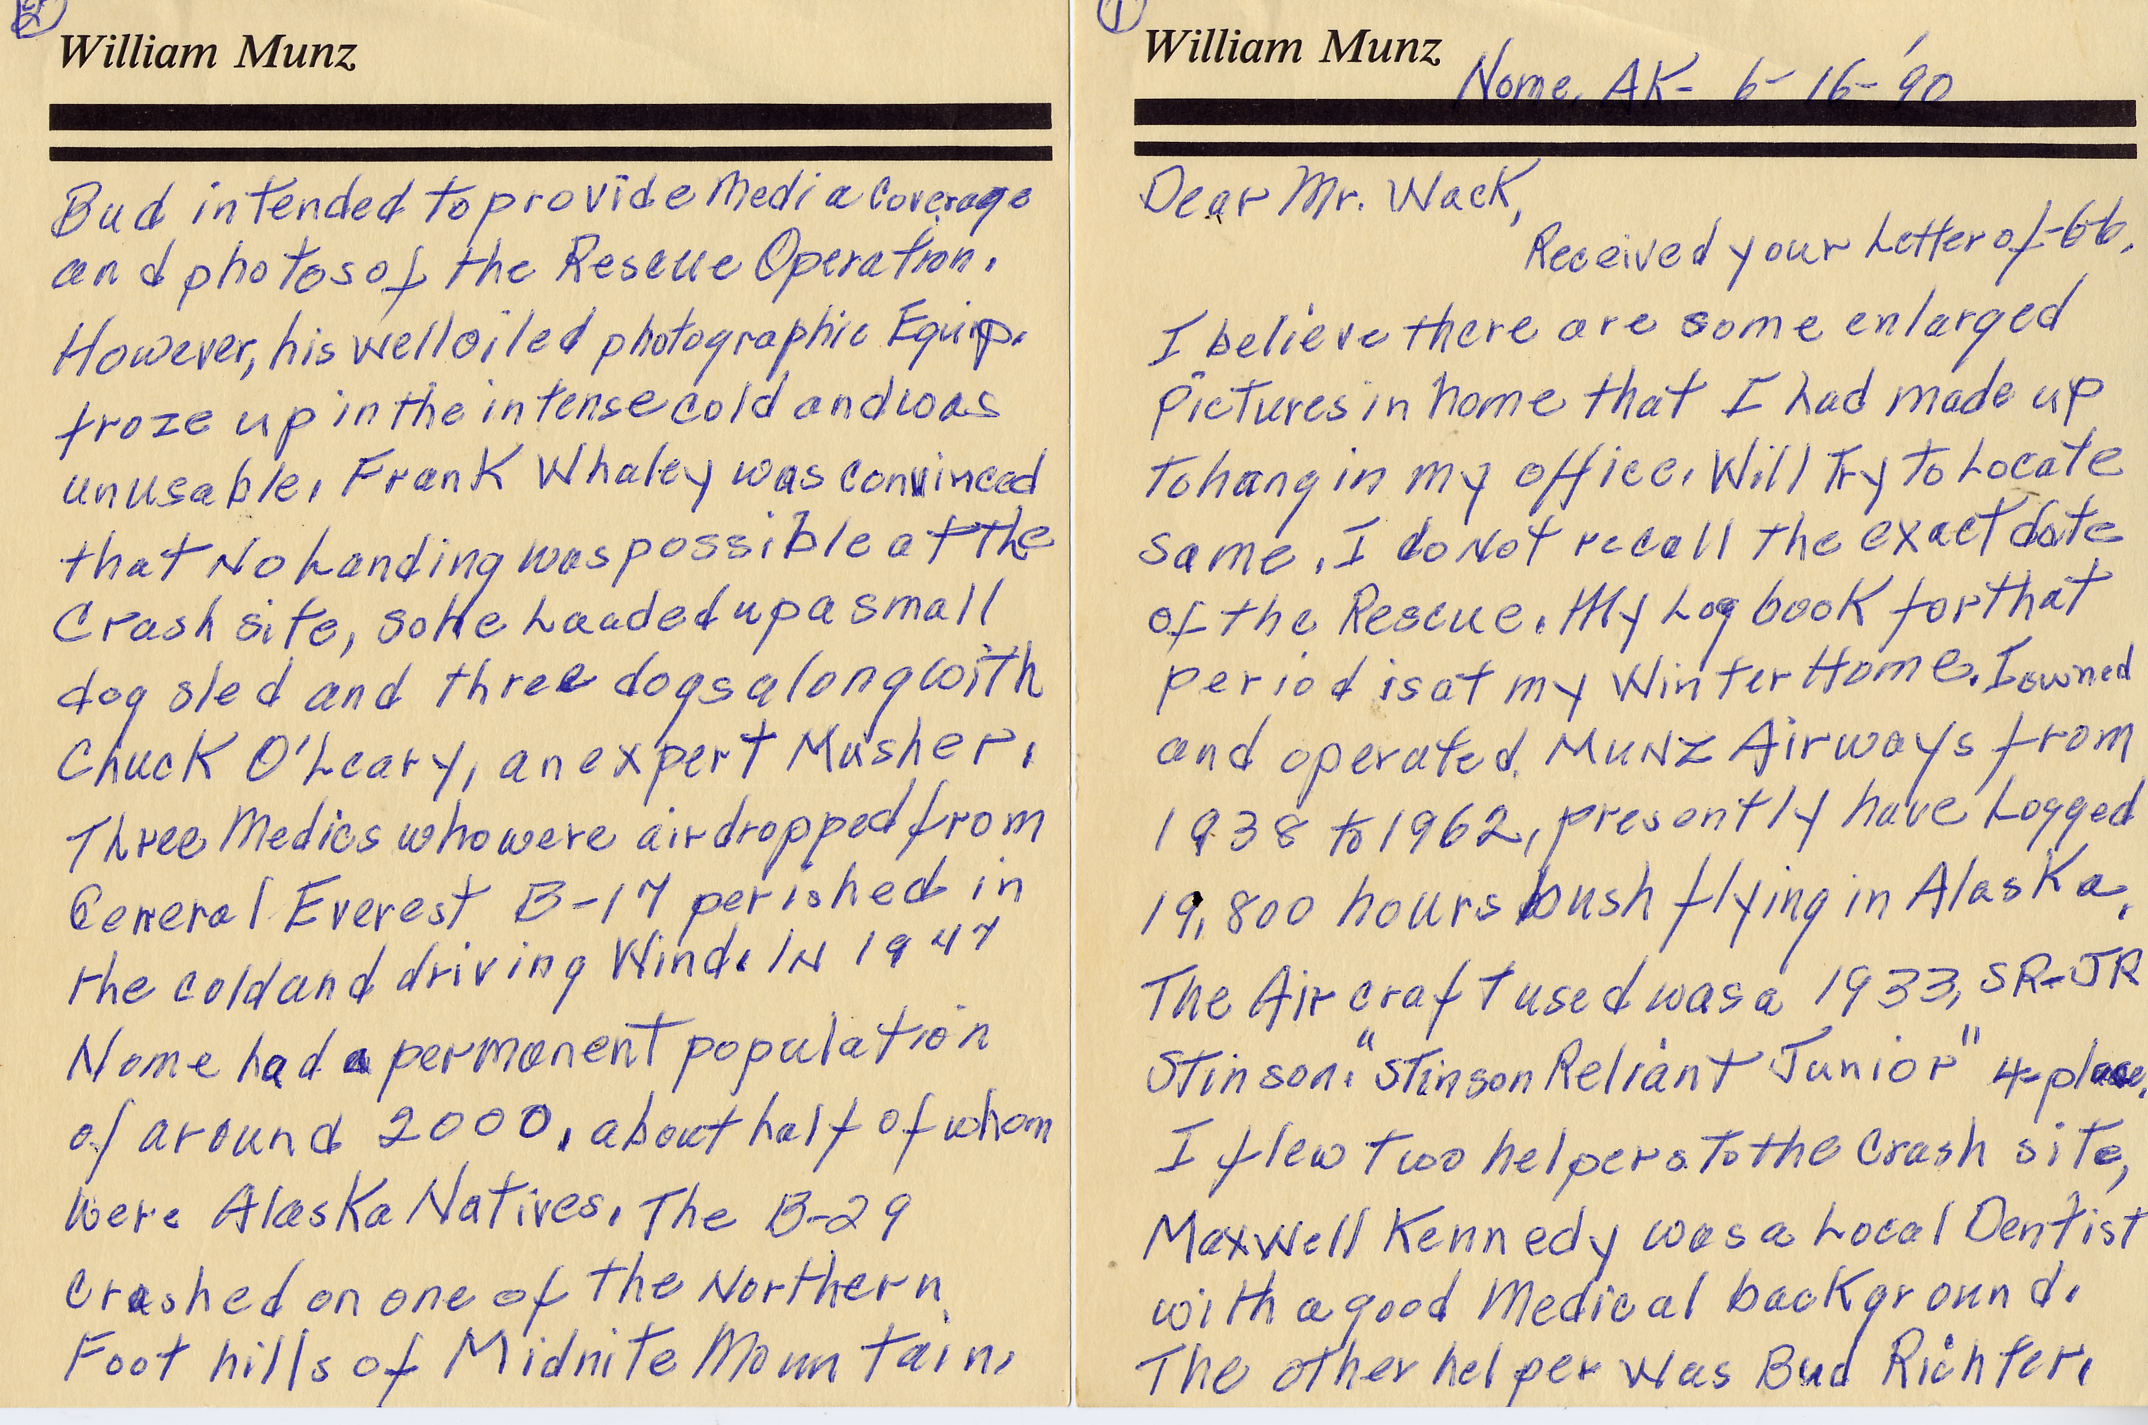 1
William Munz
Nome, AK- 6-16-'90
Dear Mr. Wack,
Received your Letter of -6-6.
I believe there are some enlarged
pictures in home that I had made up
to hang in my office. Will Try to Locate
same. I do Not recall the exact date
of the Rescue. My Log book for that
period is at my Winter Home. I owned
and operated MUNZ Airways from
1938 to 1962, presently have Logged
19,800 hours bush flying in Alaska.
The Aircraft used was a 1933, SR-JR
Stinson. "Stinson Reliant Junior" 4-place.
I flew two helpers to the Crash site,
Maxwell Kennedy was a Local Dentist
with a good Medical background.
The other helper was Bud Richter.
2
William Munz
Bud intended to provide Media Coverage
and photos of the Rescue Operation.
However, his well oiled photographic Equip.
froze up in the intense cold and was
unusable. Frank Whaley was convinced
that No Landing was possible at the
Crash site, so He Loaded up a small
dog sled and three dogs along with
Chuck O'Leary, an expert Musher.
Three Medics who were airdropped from
General Everest B-17 perished in
the cold and driving Wind. IN 1947
Nome had a permanent population
of around 2000, about half of whom
were Alaska Natives. The B-29
crashed on one of the Northern
Foot hills of Midnite Mountain.